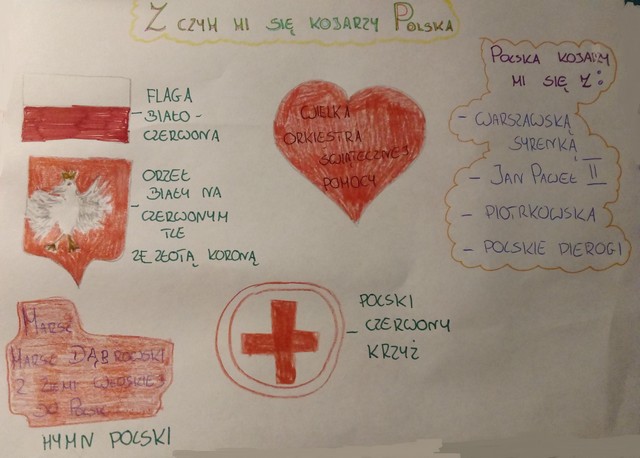 Z CZYM MI SIĘ KOJARZY POLSKA
FLAGA
BIAŁO-
CZERWONA
ORZEŁ
BIAŁY NA
CZERWONYM
TLE
ZE ZŁOTĄ KORONĄ
WIELKA
ORKIESTRA
ŚWIĄTECZNEJ
POMOCY
POLSKA KOJARZY
MI SIĘ Z:
- WARSZAWSKĄ
SYRENKĄ
- JAN PAWEŁ II
- PIOTRKOWSKA
- POLSKIE PIEROGI
MARSZ
MARSZ DĄBROWSKI
Z ZIEMI WŁOSKIEJ
DO POLSKI
HYMN POLSKI
POLSKI
CZERWONY
KRZYŻ